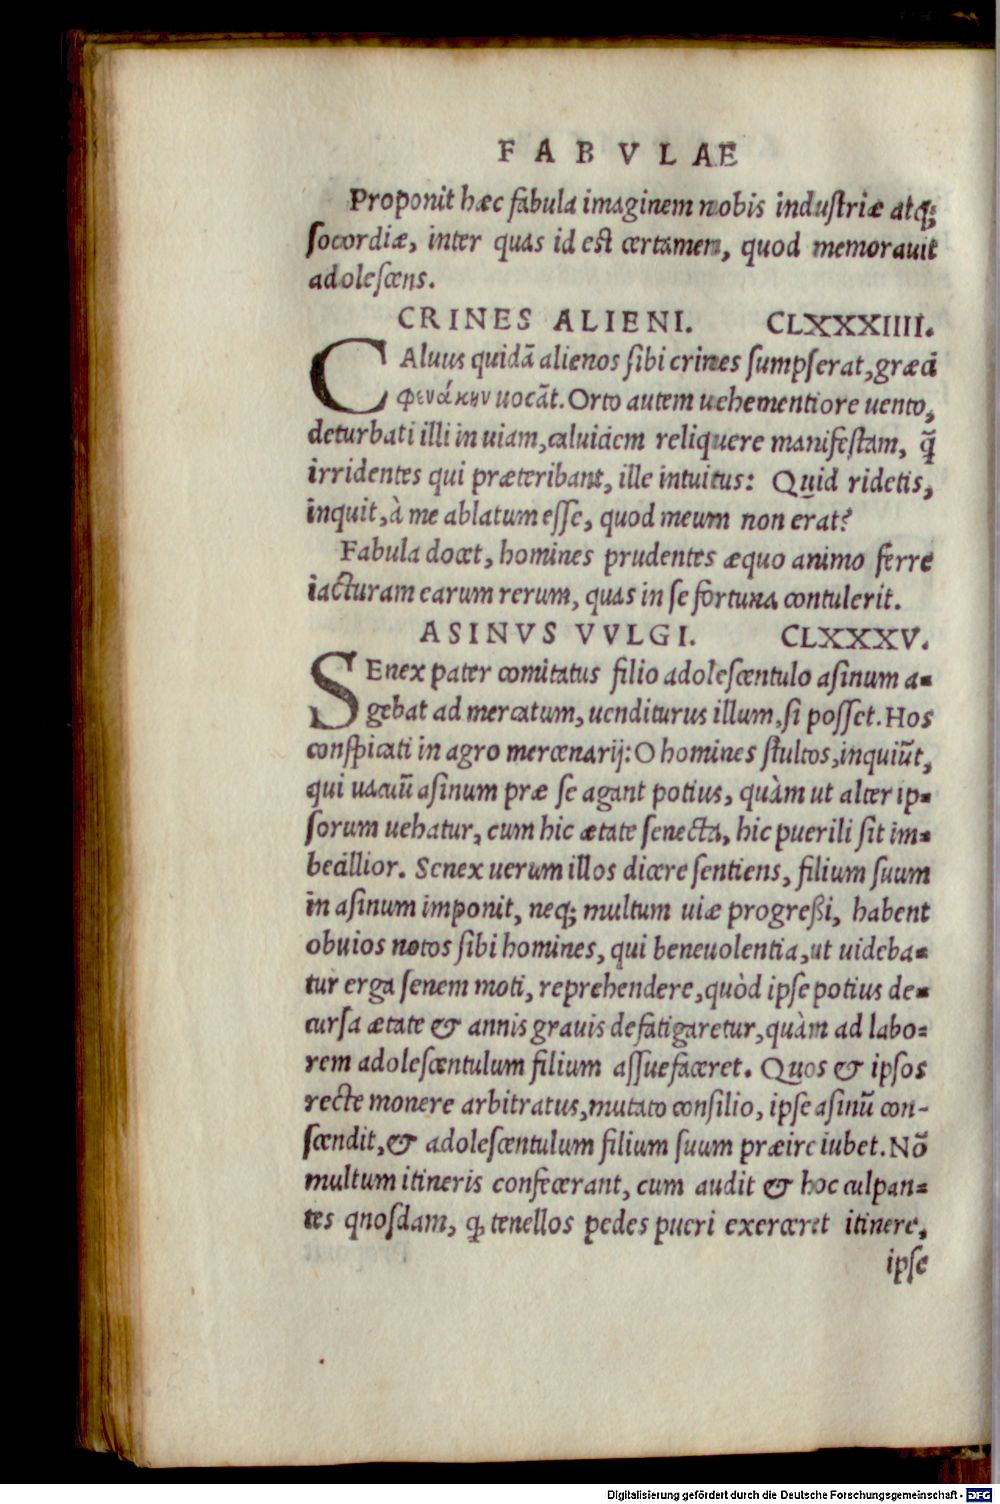 FABVLAE
Proponit hæc fabula imaginem nobis industriæ atq;
socordiæ, inter quas id est certamen, quod memorauit
adolescens.
CRINES ALIENI. CLXXXIIII.
CAluus quidã alienos sibi crines sumpserat, græci
φενάκην uocãt. Orto autem uehementiore uento,
deturbati illi in uiam, caluiciem reliquere manifestam, q̃
irridentes qui præteribant, ille intuitus: Quid ridetis,
inquit, à me ablatum esse, quod meum non erat?
Fabula docet, homines prudentes æquo animo ferre
iacturam earum rerum, quas in se fortuna contulerit.
ASINVS VVLGI. CLXXXV.
SEnex pater comitatus filio adolescentulo asinum a-
gebat ad mercatum, uenditurus illum, si posset. Hos
conspicati in agro mercenarij: O homines stultos, inquiũt,
qui uacuũ asinum præ se agant potius, quàm ut alter ip-
sorum uehatur, cum hic ætate senecta, hic puerili sit im-
becillior. Senex uerum illos dicere sentiens, filium suum
in asinum imponit, neq; multum uiæ progreßi, habent
obuios notos sibi homines, qui beneuolentia, ut uideba-
tur erga senem moti, reprehendere, quòd ipse potius de-
cursa ætate & annis grauis defatigaretur, quàm ad labo-
rem adolescentulum filium assuefaceret. Quos & ipsos
recte monere arbitratus, mutato consilio, ipse asinũ con-
scendit, & adolescentulum filium suum præire iubet. Nõ
multum itineris confecerant, cum audit & hoc culpan-
tes qnosdam, ꝙ tenellos pedes pueri exerceret itinere,
ipse
Digitalisierung gefördert durch die Deutsche Forschungsgemeinschaft - DFG